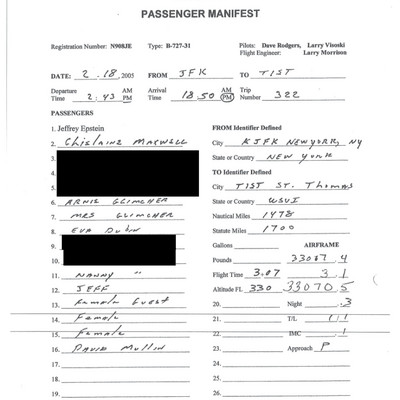 PASSENGER MANIFEST
Registration Number: N908JE Type: B-727-31 Pilots: Dave Rodgers, Larry Visoski
Flight Engineer: Larry Morrison
DATE: 2.18,2005 FROM JFK TO TIST
Departure Time 2:43 AM PM Arrival Time 18:50 AM PM Trip Number 322
PASSENGERS
1. Jeffrey Epstein FROM Identifier Defined
2. Ghislaine Maxwell City KJFK New York, NY
3. State or Country New York
4. TO Identifier Defined
5. City TIST St. Thomas
6. Arnie Glimcher State or Country USVI
7. Mrs Glimcher Nautical Miles 1478
8. Eva Dubin Statute Miles 1700
9. Gallons AIRFRAME
10. Pounds 33067.4
11. Nanny " Flight Time 3.07 3.1
12. Jeff Altitude FL 330 33070.5
13. Female Guest 20. Night .3
14. Female 21. T/L 1 / 1
15. Female 22. IMC .1
16. David Mullin 23. Approach P
17. 24.
18. 25.
19. 26.